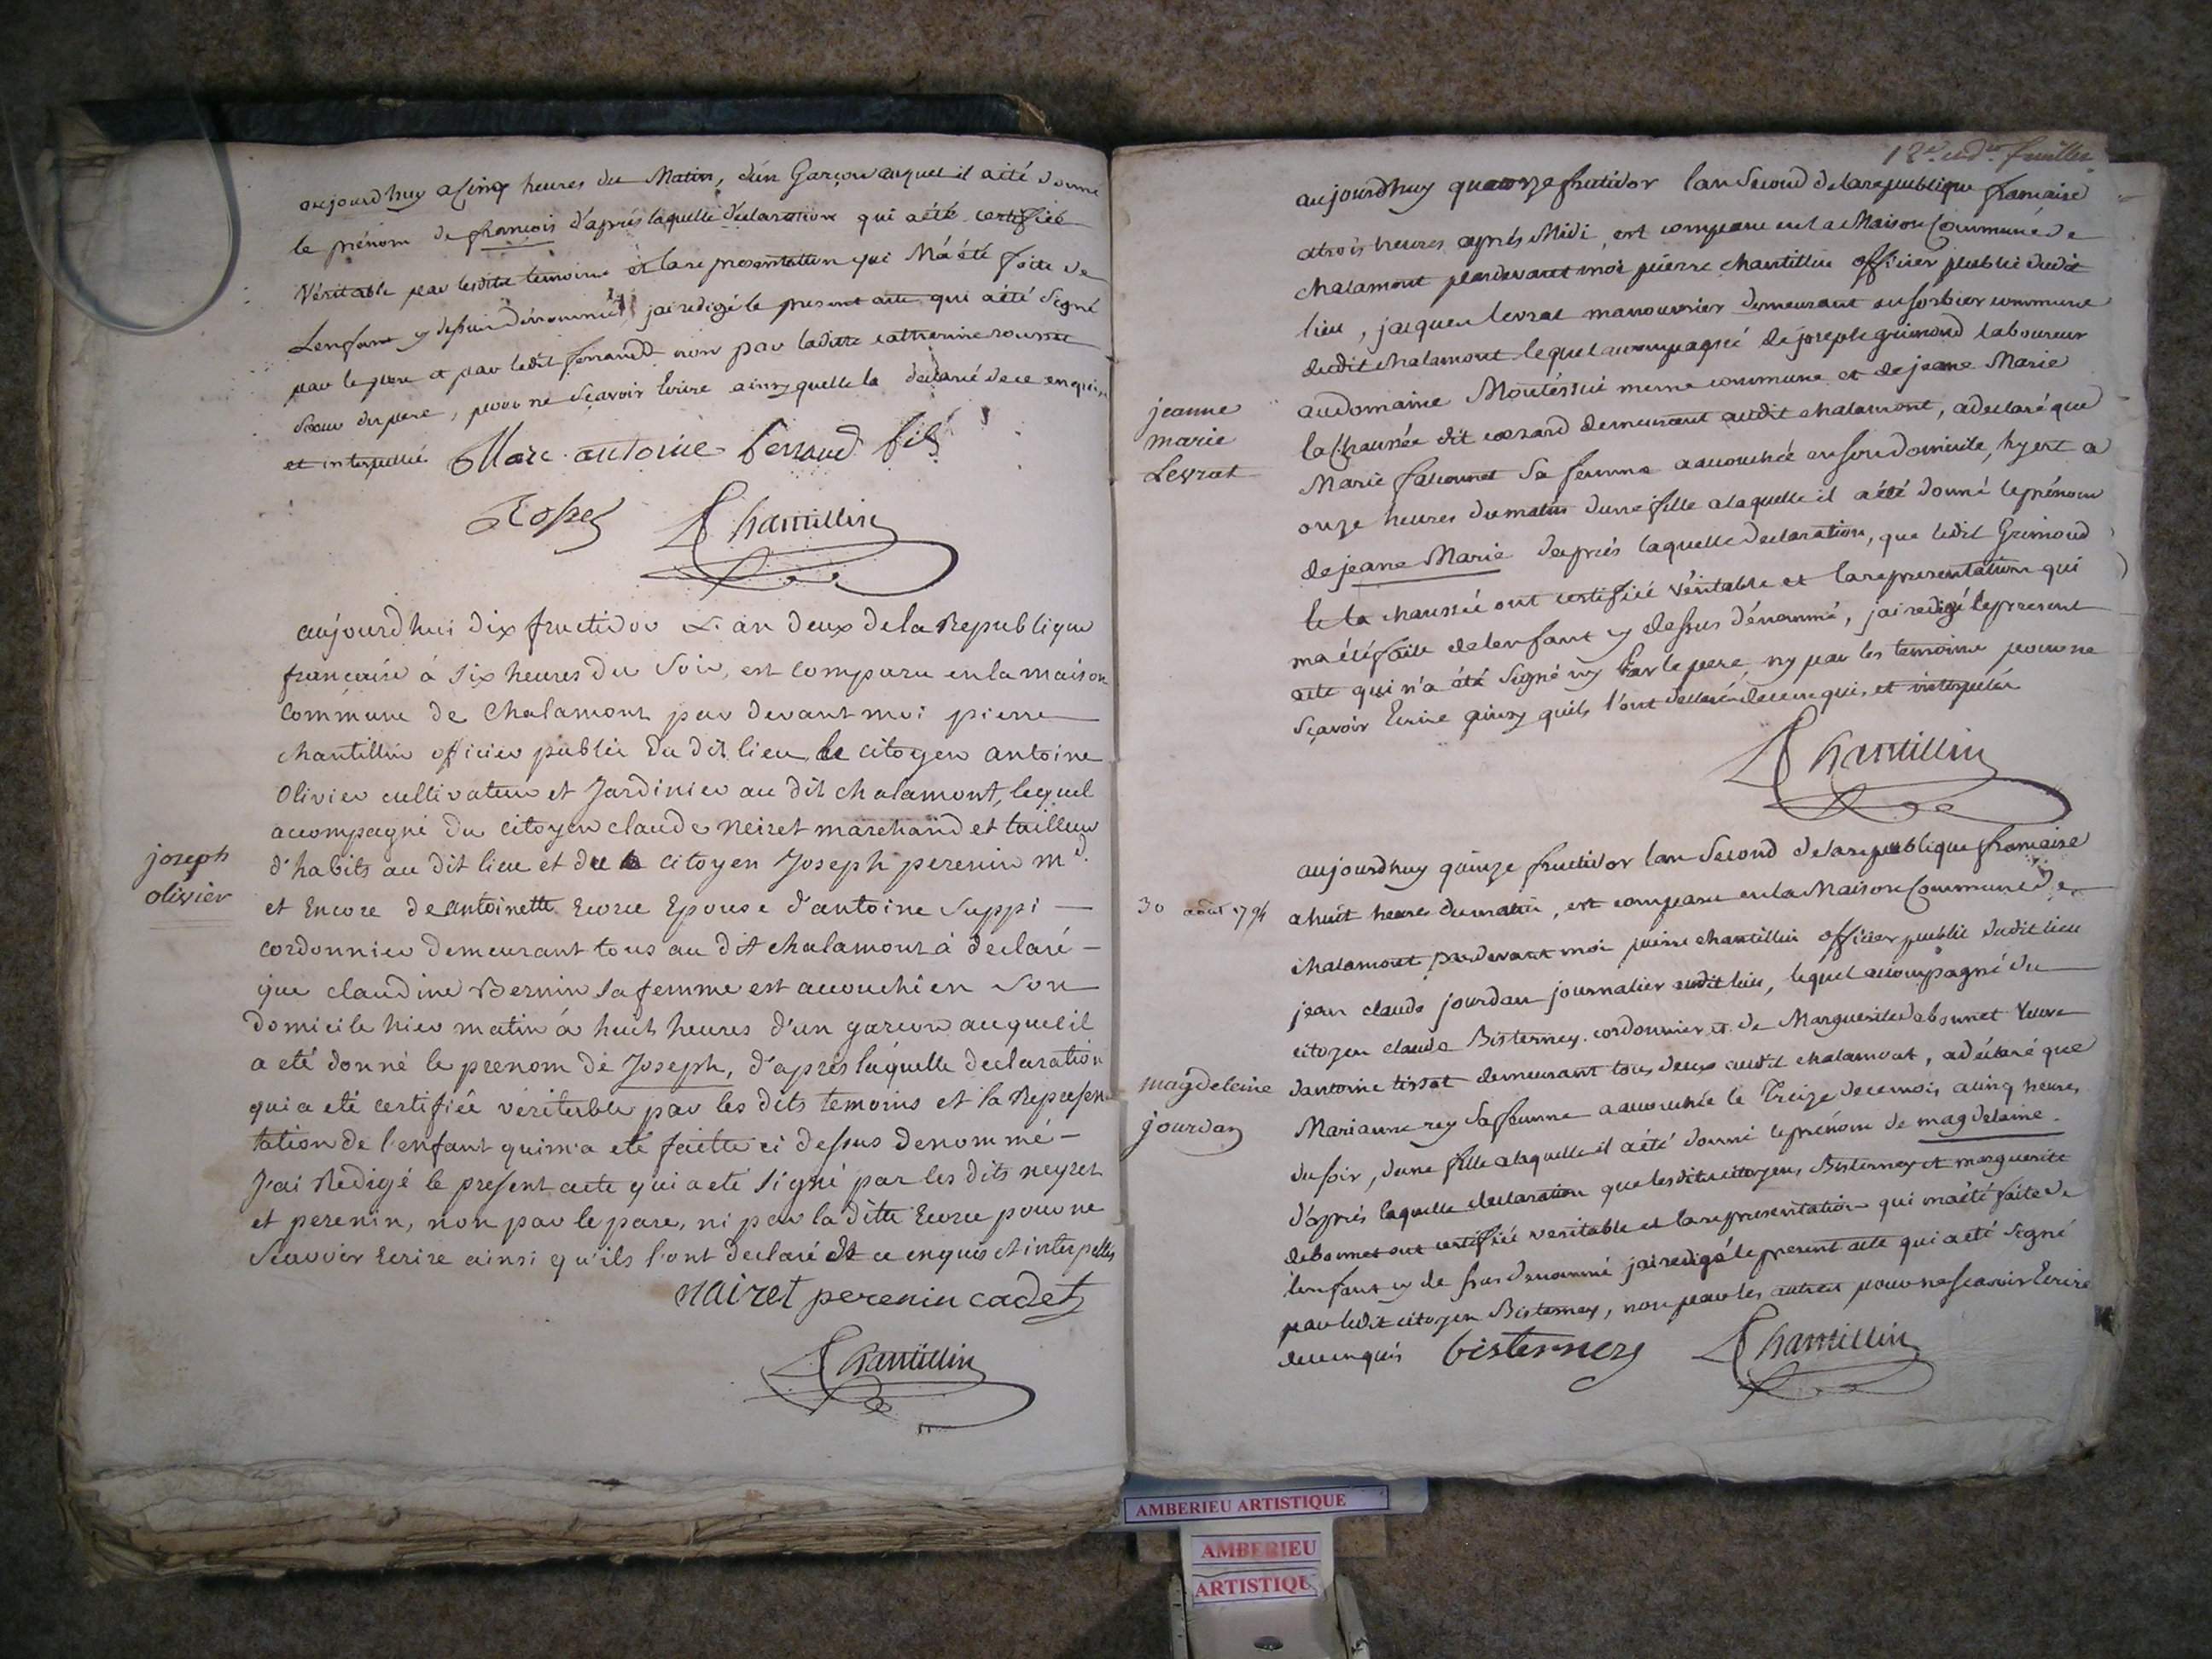 aujourdhuy a Cinq heures du Matin, d'un Garçon auquel il aété donné
le prénom de françois d'aprés laquelle déclaration qui aété certifiée
Véritable par lesdits temoins et la representation qui Má été faite de
Lenfant cy dessus Dénommé, jai redigé le present acte qui aété Signé
par le pere et par ledit ferrand non par laditte catherine
Soeur du pere, pour ne Sçavoir Ecrire ainsy quelle la declaré de ce enquise
et interpellée Marc antoine ferraud fils
Chantillin
aujourd'hui dix fructidor L'an deux de la Republique
française á six heures du Soir, est comparu en la maison
Commune de Chalamont par devant moi pierre
chantillin officier public du dit lieu, le citoyen antoine
Olivier cultivateur et Jardinier au dit chalamont, lequel
accompagné du citoyen claude Neiret marchand et tailleur
d'habits au dit lieu et du citoyen Joseph perenin md.
joseph
olivier
et Encore de antoinette Epouse d'antoine Suppi
cordonnier demeurant tous au dit chalamont à declaré
que claudine Bernin sa femme est accouché en Son
domicile hier matin á huit heures d'un garcon auquel il
a eté donné le prenom de Joseph, d'aprés láquelle declaration
qui a eté certifiée veritable par les dits temoins et la Represen
tation de l'enfant qui m'a eté faitte ci dessus denommé
J'ai Redigé le present acte qui a eté signé par les dits neyret
et perenin, non par le pere, ni par la ditte pour ne
Scavoir Ecrire ainsi qu'ils l'ont declaré de ce enquis et interpellés
nairet perenin cadet
Chantillin
12e et dre feuillet
aujourdhuy quatorze fructidor lan Second de la republique francaise
atrois heures aprés Midi, est comparu en la Maison Commune de
chalamont pardevant moi pierre chantillin officier public dudit
lieu, jacques levrat manouvrier demeurant au sorbier commune
dudit chalamont lequel accompagné de joseph grimond laboureur
audomaine Montéssui meme commune et de jeane Marie
jeanne
marie
Levrat
la Chaussée dit demeurant audit chalamont, a declaré que
Marie falconnet Sa femme a accouchée en son domicile, hyert a
onze heures du matin dune fille a laquelle il aété donné le prénom
de jeane Marie daprés laquelle declaration, que ledit Grimond
et la chaussée ont certifiée véritable et la representation qui
ma été faite de lenfant cy dessus dénommé, jai redigé le present
acte qui n'a été Signé ny Par le pere ny par les temoins pour ne
Sçavoir Ecrire ainsy quils l'ont declaré de ce enquis, et interpellés
Chantillin
aujourdhuy quinze fructidor lan Second de la republique francaise
30 août 1794
a huit heures du matin, est comparu en la Maison Commune de
chalamont pardevant moi pierre chantillin officier public dudit lieu
jean claude jourdan journalier audit lieu, lequel accompagné du
citoyen claude Bisterney cordonnier et de Marguerite debonnet Veuve
magdeleine
jourdan
dantoine tissot demeurant tous deux audit chalamont, a déclaré que
Marianne rey Sa femme a accouchée le Treize de ce mois acinq heures
du soir, dune fille alaquelle il aété donné le prénom de magdelaine.
d'aprés laquelle declaration que lesdits citoyens Bisterney et marguerite
debonnet ont certifiée veritable et la representation qui ma été faite de
lenfant cy de ssus denommé jai redigé le present acte qui aété Signé
par ledit citoyen Bisterney, non par les autres pour ne scavoir Ecrire
de ce enquis bisterney Chantillin
AMBERIEU ARTISTIQUE
AMBERIEU
ARTISTIQU